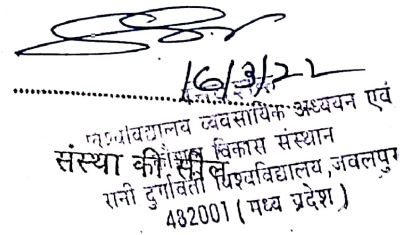 16/3/22
विश्वविद्यालय व्यवसायिक अध्ययन एवं
कौशल विकास संस्थान
संस्था की सील
रानी दुर्गावती विश्वविद्यालय, जबलपुर
482001 ( मध्य प्रदेश )